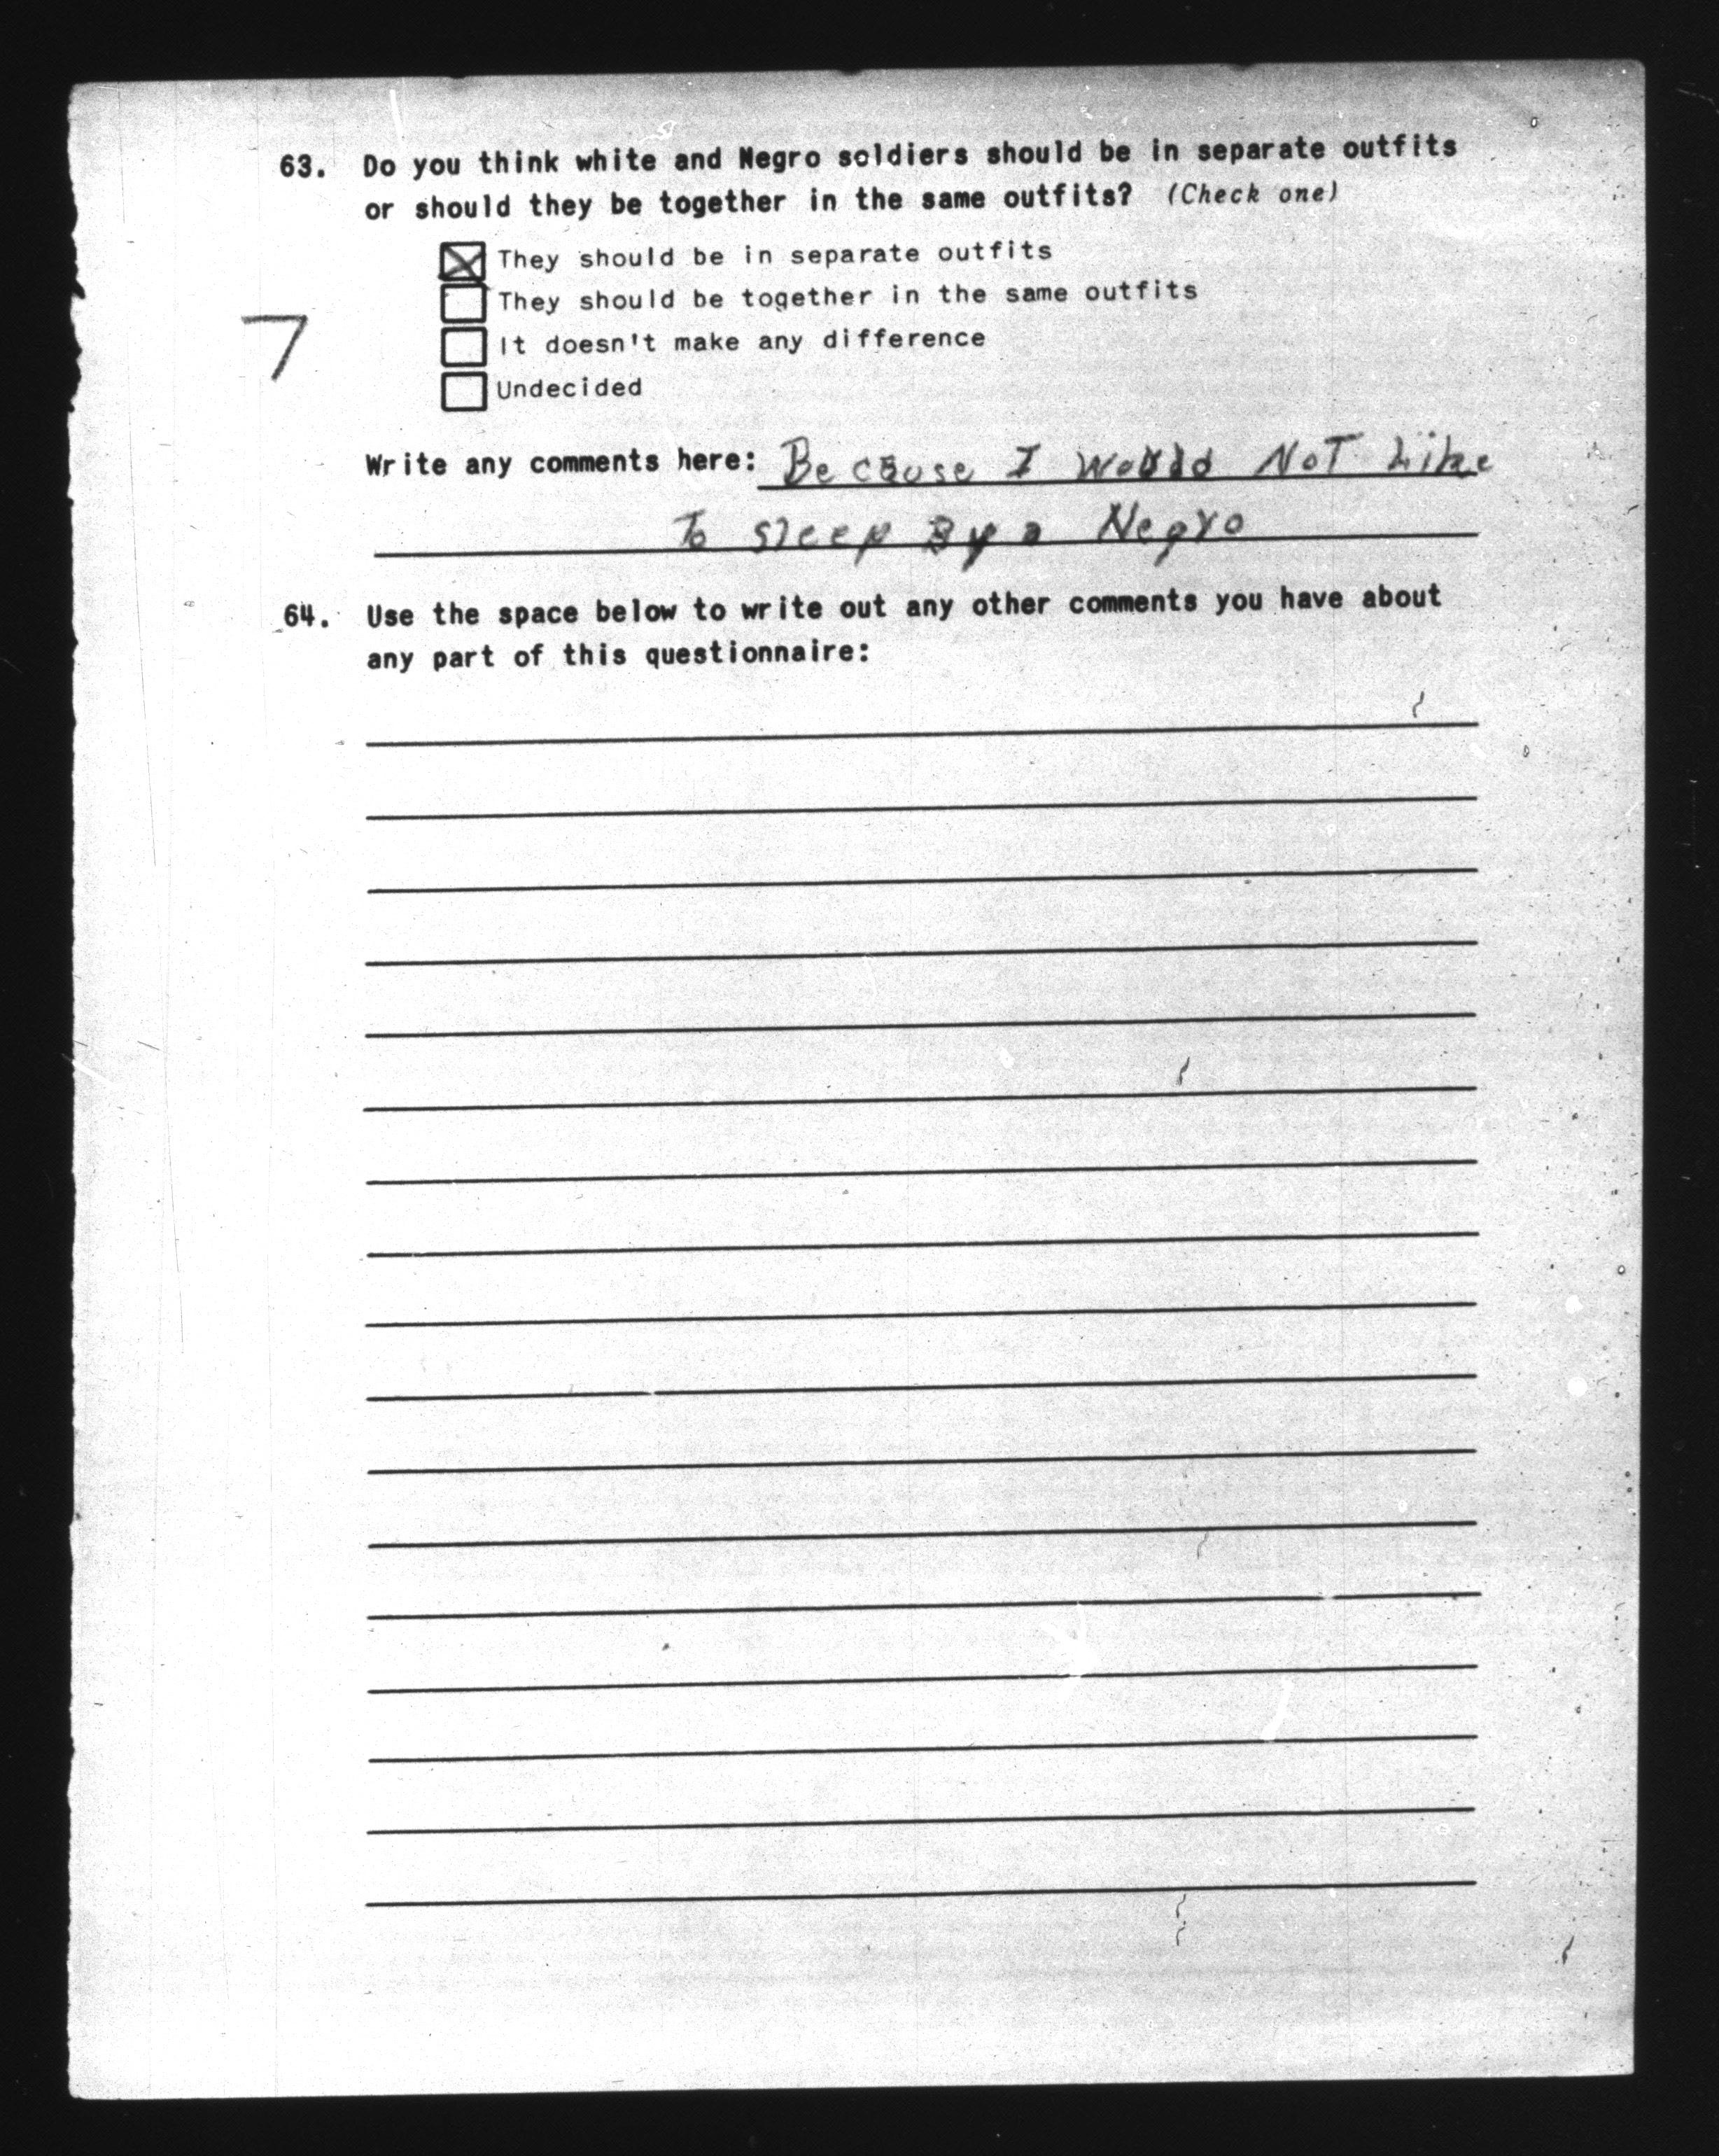 63. Do you think white and Negro soldiers should be in separate outfits
or should they be together in the same outfits? (Check one)
They should be in separate outfits
They should be together in the same outfits
7
It doesn't make any difference
Undecided
Write any comments here: Because I Would NoT Like
To sleep By a Negro
64. Use the space below to write out any other comments you have about
any part of this questionnaire: